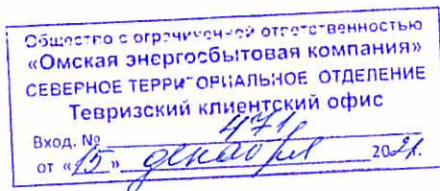 Общество с ограниченной ответственностью
«Омская энергосбытовая компания»
СЕВЕРНОЕ ТЕРРИТОРИАЛЬНОЕ ОТДЕЛЕНИЕ
Тевризский клиентский офис
Вход. № 471
от «15» декабря 2021.